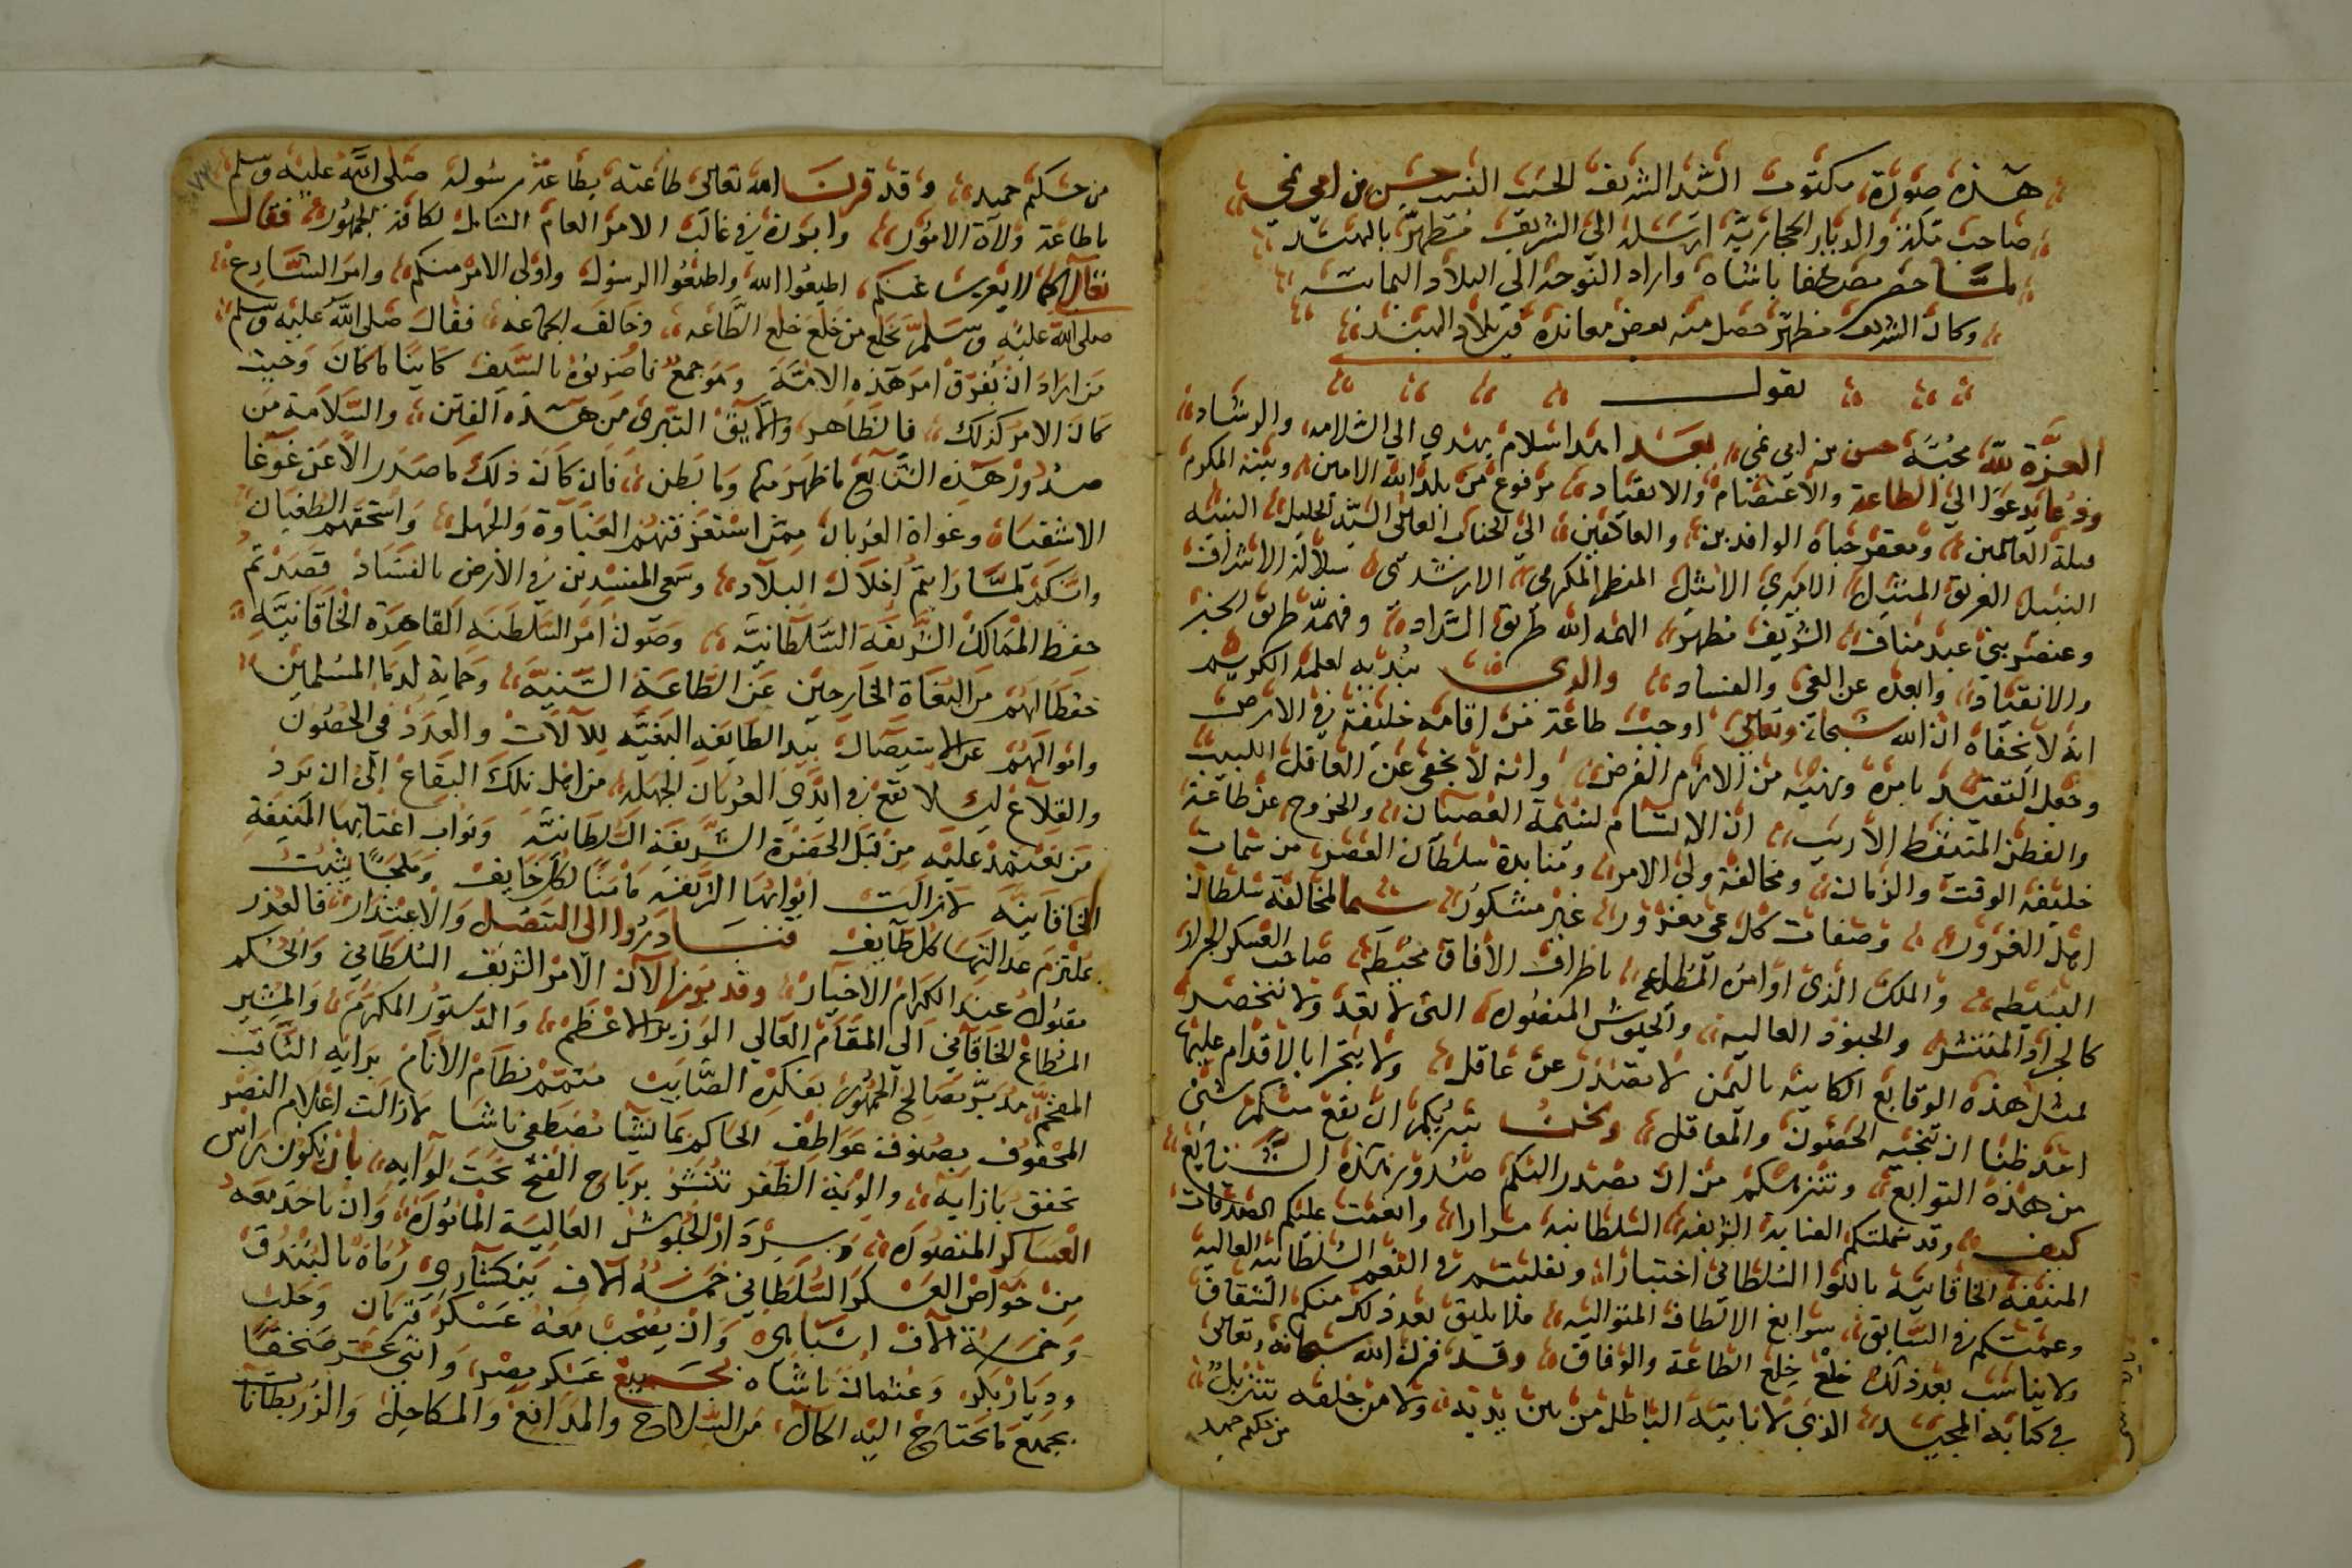 هذه صورة مكتوب السيد الشريف الحسيب النسيب حسن بن ابي نمي
صاحب مكة والديار الحجازية ارسله الى الشريف مطهر بالهند
لما حضر مصطفى باشاه واراد التوجه الى البلاد اليمانية
وكان الشريف مطهر حصل منه بعض معاندة في بلاد
يقول
العزة لله محبه حسن بن ابي نمي بعد اهدا سلام يهدي الى السلامه والرشاد
ودعا يدعوا الى الطاعة والاعتصام والانقياد مرفوع من بلد الله الامين وبيته المكرم
قبلة العالمين ومعفر جباه الوافدين والعاكفين الى الجناب العالي السيد الجليل النبيه
النبيل العريق المثيل الاميري الامثيل المفخم المكرمي الارشدي سلالة الاشراف
وعنصر بني عبد مناف الشريف مطهر الهمه الله طريق السداد وفهمه طريق الخير
والانقياد وابعده عن الغي والفساد والذي نبديه لعلمه الكريم
انه لا نخفاه ان الله سبحانه وتعالى اوجب طاعة من اقامه خليفة في الارض
وجعل التقييد بامره ونهيه من الازم الفرض وانه لا يخفى عن العاقل اللبيب
والفطن المتيقظ الاريب ان الاتسام بسمة العصيان والخروج عن طاعة
خليفة الوقت والزمان ومخالفة ولي الامر ومنابدة سلطان العصر من سمات
اهل الغرور وصفات كل غي مغرور غير مشكور سيما المخالفة سلطان
البسيطه والملك الذي اوامره المطاعه باطراف الافاق محيطه صاحب العسكر الجرار
كالجراد المنتشر والجنود العاليه والجيوش المنصوره التي لا تعد ولا تنحصر
لمثل هذه الوقايع الكاينه باليمن لا تصدر عن عاقل ولا يتجرا بالاقدام عليها
اعد ظنا ان تنجيه الحصون والمعاقل ونحن نبريكم ان يقع منكم شئ
من هذه التوابع وننزهكم من ان يصدر اليكم صدور هذه الشنايع
كيف وقد شملتكم العناية الشريفه السلطانيه مرارا وانعمت عليكم الصدقات
المنيفه الخاقانية باللوا السلطاني اختيارا وتقلبتم في النعم السلطانيه العاليه
وعمتكم في السابق سوابغ الالطاف المتواليه فلا يليق بعد ذلك منكم الشقاق
ولا يناسب بعد ذلك خلع خلع الطاعة والوفاق وقد قرن الله سبحانه وتعالى
في كتابه المجيد الذي لا ياتيه الباطل من بين يديه ولا من خلفه تنزيل
من حكيم حميد
من حكيم حميد وقد قرن الله تعالى طاعته بطاعة رسوله صلى الله عليه وسلم
باطاعة ولاة الامور وابرزه في غالب الامر العام الشامل لكافة الجمهور فقال
تعالى اطيعوا الله واطيعوا الرسول واولي الامر منكم وامر الشارع
صلى الله عليه وسلم بخلع من خلع خلع الطاعه وخالف الجماعه فقال صلى الله عليه وسلم
من اراد ان يفرق امر هذه الامة وهو جمع فاضربوه بالسيف كاينا ما كان وحيث
كان الامر كذلك فالظاهر والايق التبري من هذه الفتن والسلامة من
صدور هذه الشنايع ما ظهر منها وما بطن فان كان ذلك ما صدر الا عن غوغا
الاشقيا وغواة العربان ممن استغرقتهم الغباوة والجهل واستحقهم الطغيان
وانكم لما رايتم اختلال البلاد وسعى المفسدين في الارض بالفساد قصدتم
حفظ الممالك الشريفة السلطانية وصون امر السلطنه القاهرة الخاقانية
حفظا لهم من البغاة الخارجين عن الطاعة السنية وحماية لدما المسلمين
واموالهم عن الاستيصال بيد الطايفه البغيه للآلات والعدد في الحصون
والقلاع ليلا تقع في ايدي العربان الجهله من اهل تلك البقاع الى ان يرد
من يعتمد عليه من قبل الحضرة الشريفة السلطانية ونواب اعتابها المنيفة
الخاقانية لازالت ابوابها الشريفة مامنا لكل خايف وملجا يثبت
بملتزم عدالتها كل طايف فتبادروا الى التنصل والاعتذار فالعذر
مقبول عند الكرام الاخيار وقد برز الآن الامر الشريف السلطاني والحكم
المطاع الخاقاني الى المقام العالي الوزير الاعظم والدستور المكرم والمشير
المفخم مدبر مصالح الجمهور بفكره الصايب متمم نظام الانام برايه الثاقب
المحفوف بصنوف عواطف الحاكم بما يشا مصطفى باشا لازالت اعلام النصر
تخفق بازايه والوية الظفر تنشر برياح الفتح تحت لوايه بان يكون راس
العساكر المنصوره وسردار الجيوش العالية الماثورة وان ياخذ معه
من خواص العسكر السلطاني خمسة آلاف ينكشاري رماة بالبندق
وخمسة آلاف اسباهي وان يصحب معه عسكر قرمان وحلب
وديار بكر وعثمان باشاه بجميع عسكر مصر واثني عشر صنجقا
بجميع ما يحتاج اليه الحال من السلاح والمدافع والمكاحل والزربطانات